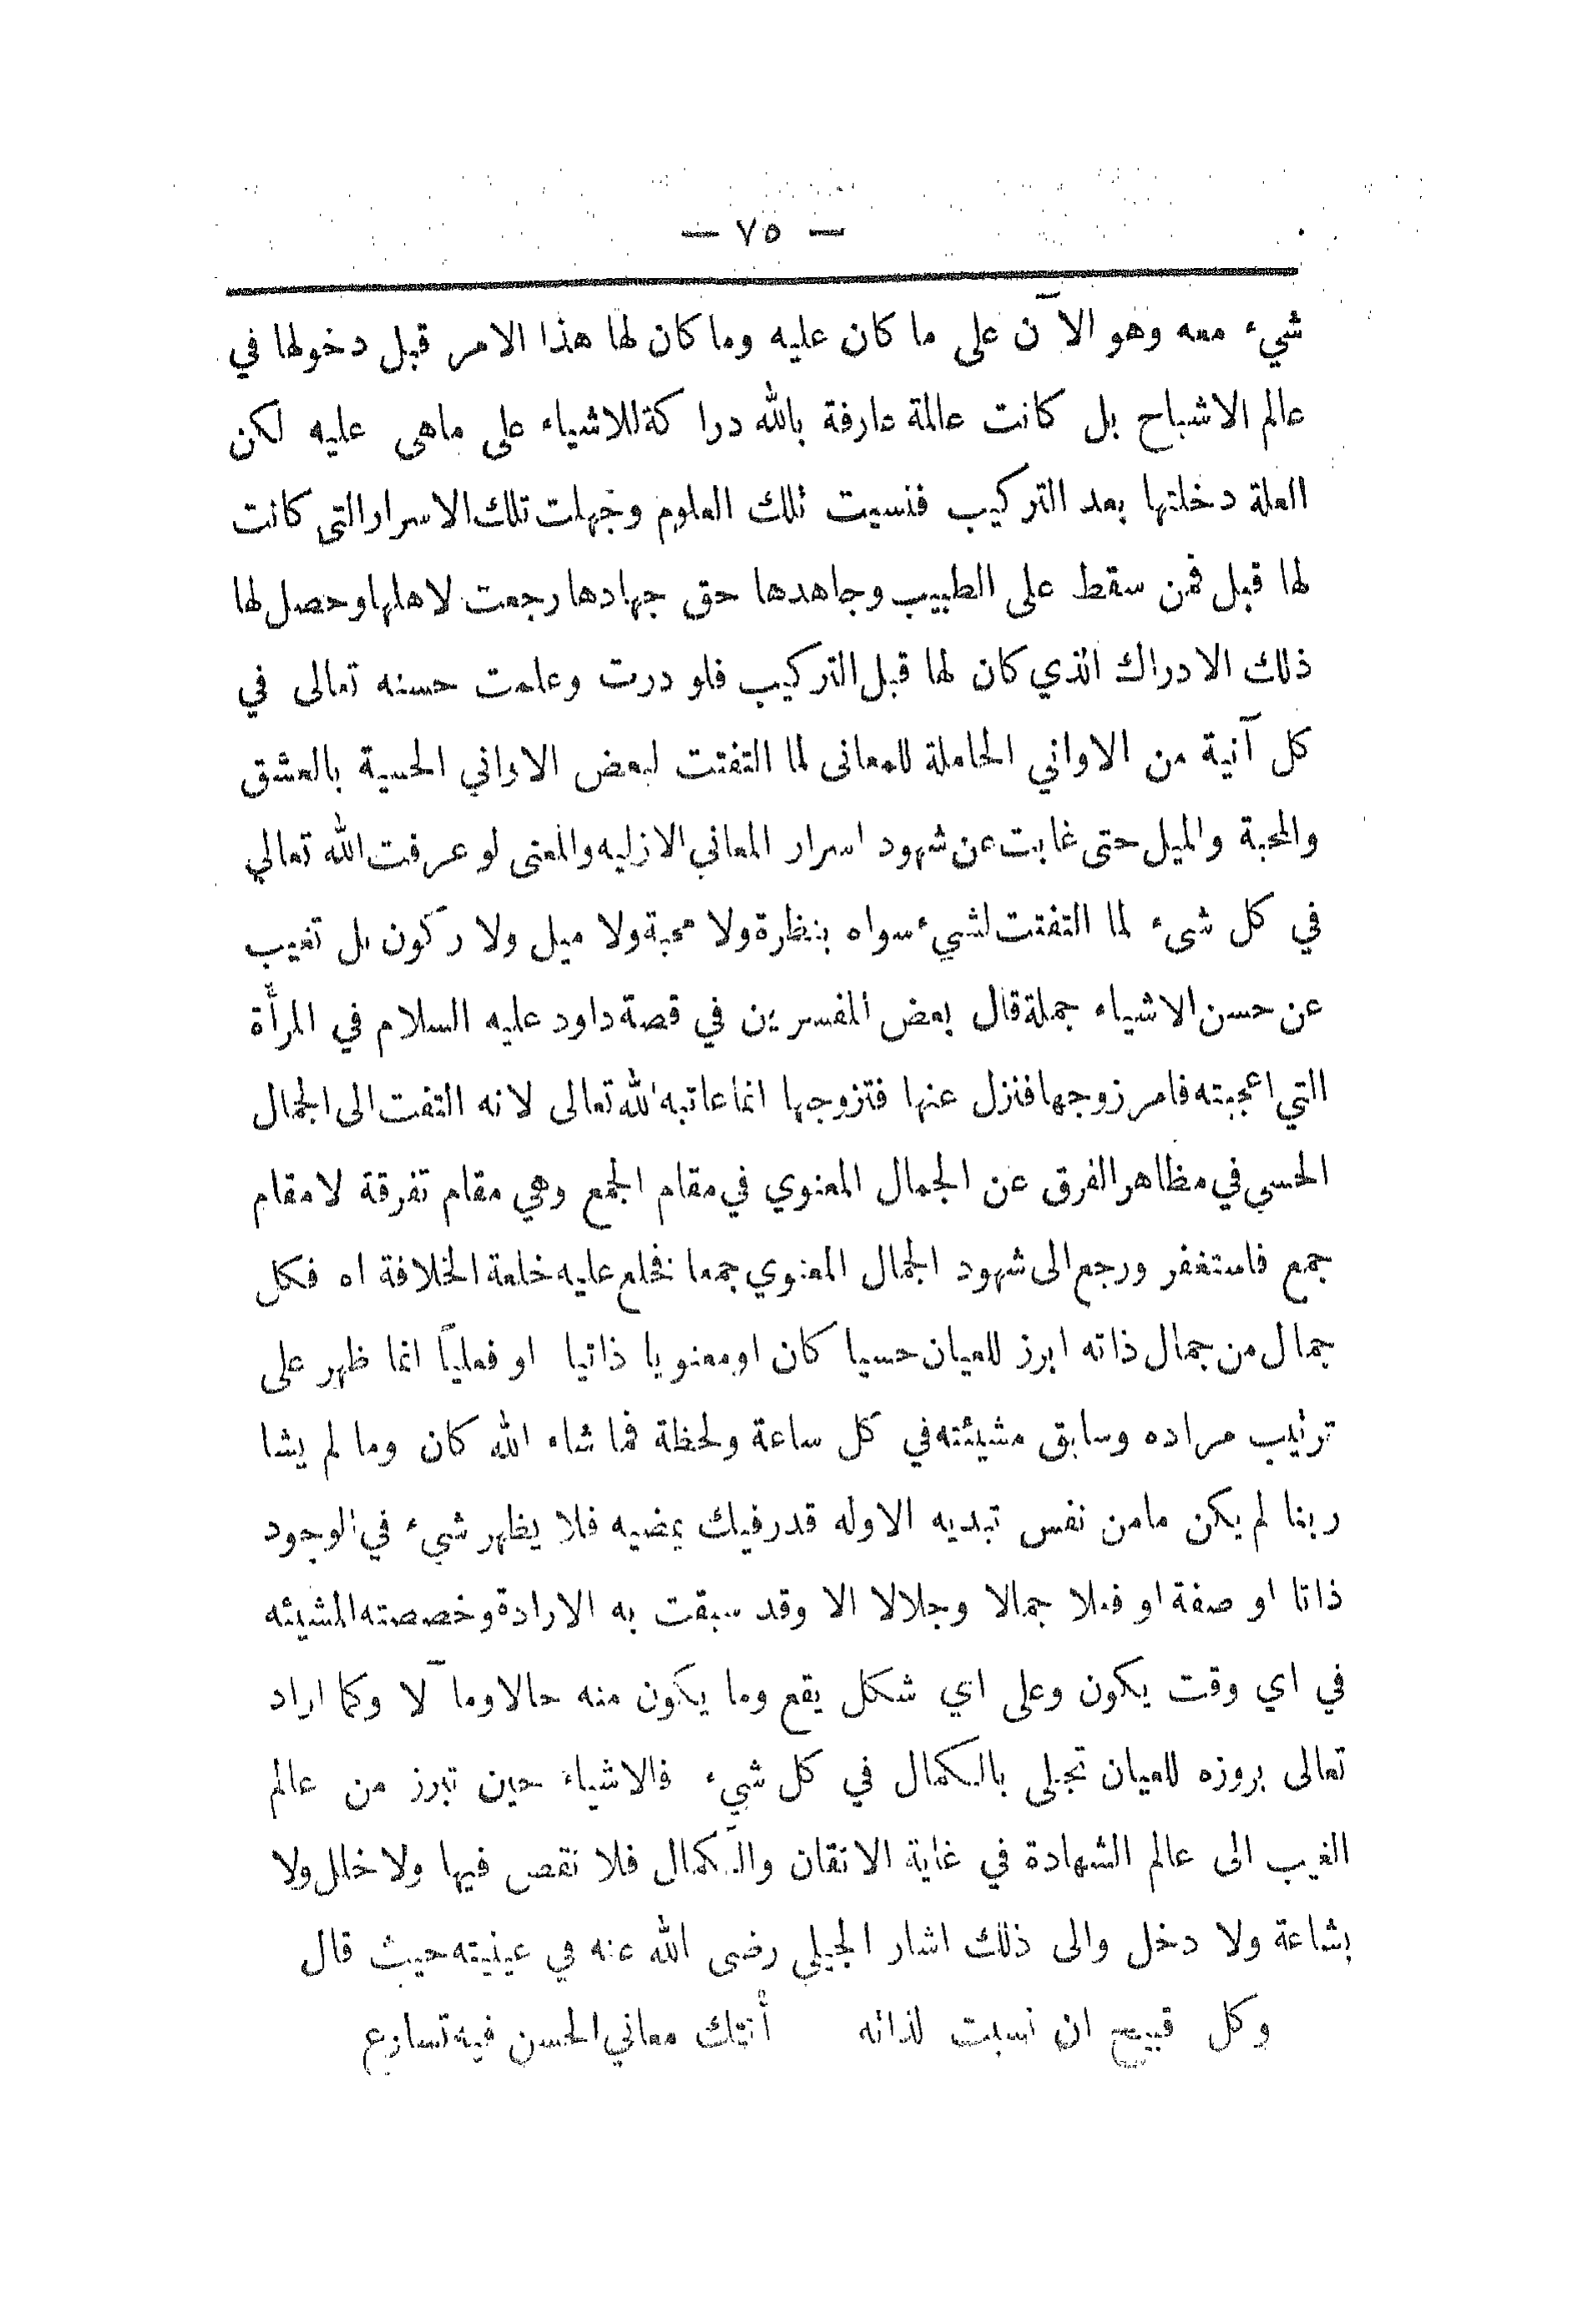 — ٧٥ —
شيء معه وهو الآن على ما كان عليه وما كان لها هذا الامر قبل دخولها في
عالم الاشباح بل كانت عالمة عارفة بالله درا كة للاشياء على ماهى عليه لكن
العلة دخلتها بعد التركيب فنسيت تلك العلوم وجهلت تلك الاسرار التى كانت
لها قبل فمن سقط على الطبيب وجاهدها حق جهادها رجعت لاهلها وحصل لها
ذلك الادراك الذي كان لها قبل التركيب فلو درت وعلمت حسنه تعالى في
كل آنية من الاواني الحاملة للمعانى لما التفتت لبعض الاواني الحسية بالعشق
والمحبة والميل حتى غابت عن شهود اسرار المعاني الازليه والمعنى لو عرفت الله تعالي
في كل شىء لما التفتت لشيء سواه بنظرة ولا محبة ولا ميل ولا ركون بل تغيب
عن حسن الاشياء جملة قال بعض المفسرين في قصة داود عليه السلام في المرأة
التي اعجبته فامر زوجها فنزل عنها فتزوجها انما عاتبه الله تعالى لانه التفت الى الجمال
الحسي في مظاهر الفرق عن الجمال المعنوي في مقام الجمع وهي مقام تفرقة لا مقام
جمع فاستغفر ورجع الى شهود الجمال المعنوي جمعا فخلع عليه خلعة الخلافة اه فكل
جمال من جمال ذاته ابرز للعيان حسيا كان او معنويا ذاتيا او فعلياً انما ظهر على
ترتيب مراده وسابق مشيئته في كل ساعة ولحظة فما شاء الله كان وما لم يشا
ربنا لم يكن مامن نفس تبديه الاوله قدر فيك يمضيه فلا يظهر شيء في الوجود
ذاتا او صفة او فعلا جمالا وجلالا الا وقد سبقت به الارادة وخصصته المشيئه
في اي وقت يكون وعلى اي شكل يقع وما يكون منه حالا ومآلا وكما اراد
تعالى بروزه للعيان تجلى بالكمال في كل شيء فالاشياء حين تبرز من عالم
الغيب الى عالم الشهادة في غاية الاتقان والكمال فلا نقص فيها ولا خلل ولا
بشاعة ولا دخل والى ذلك اشار الجيلي رضى الله عنه في عينيته حيث قال
وكل قبيح ان نسبت لذاته أتتك معاني الحسن فيه تسارع